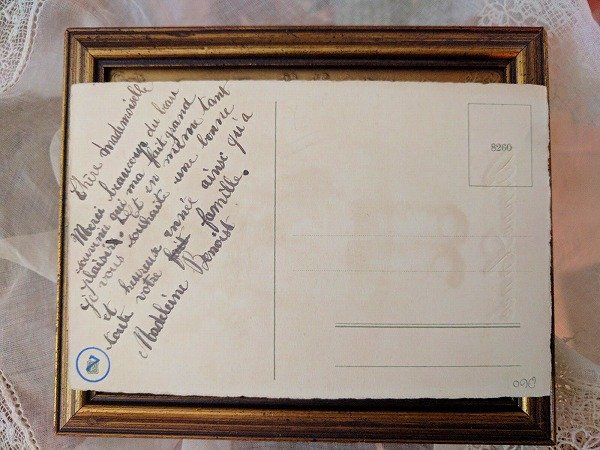 Chère Mademoiselle
Merci beaucoup du beau
souvenir qui ma fait grand
plaisir. Et en même tant
Je vous souhaite une bonne
et heureuse année ainsi qu'a
toute votre famille.
Madeleine Benoist
8260